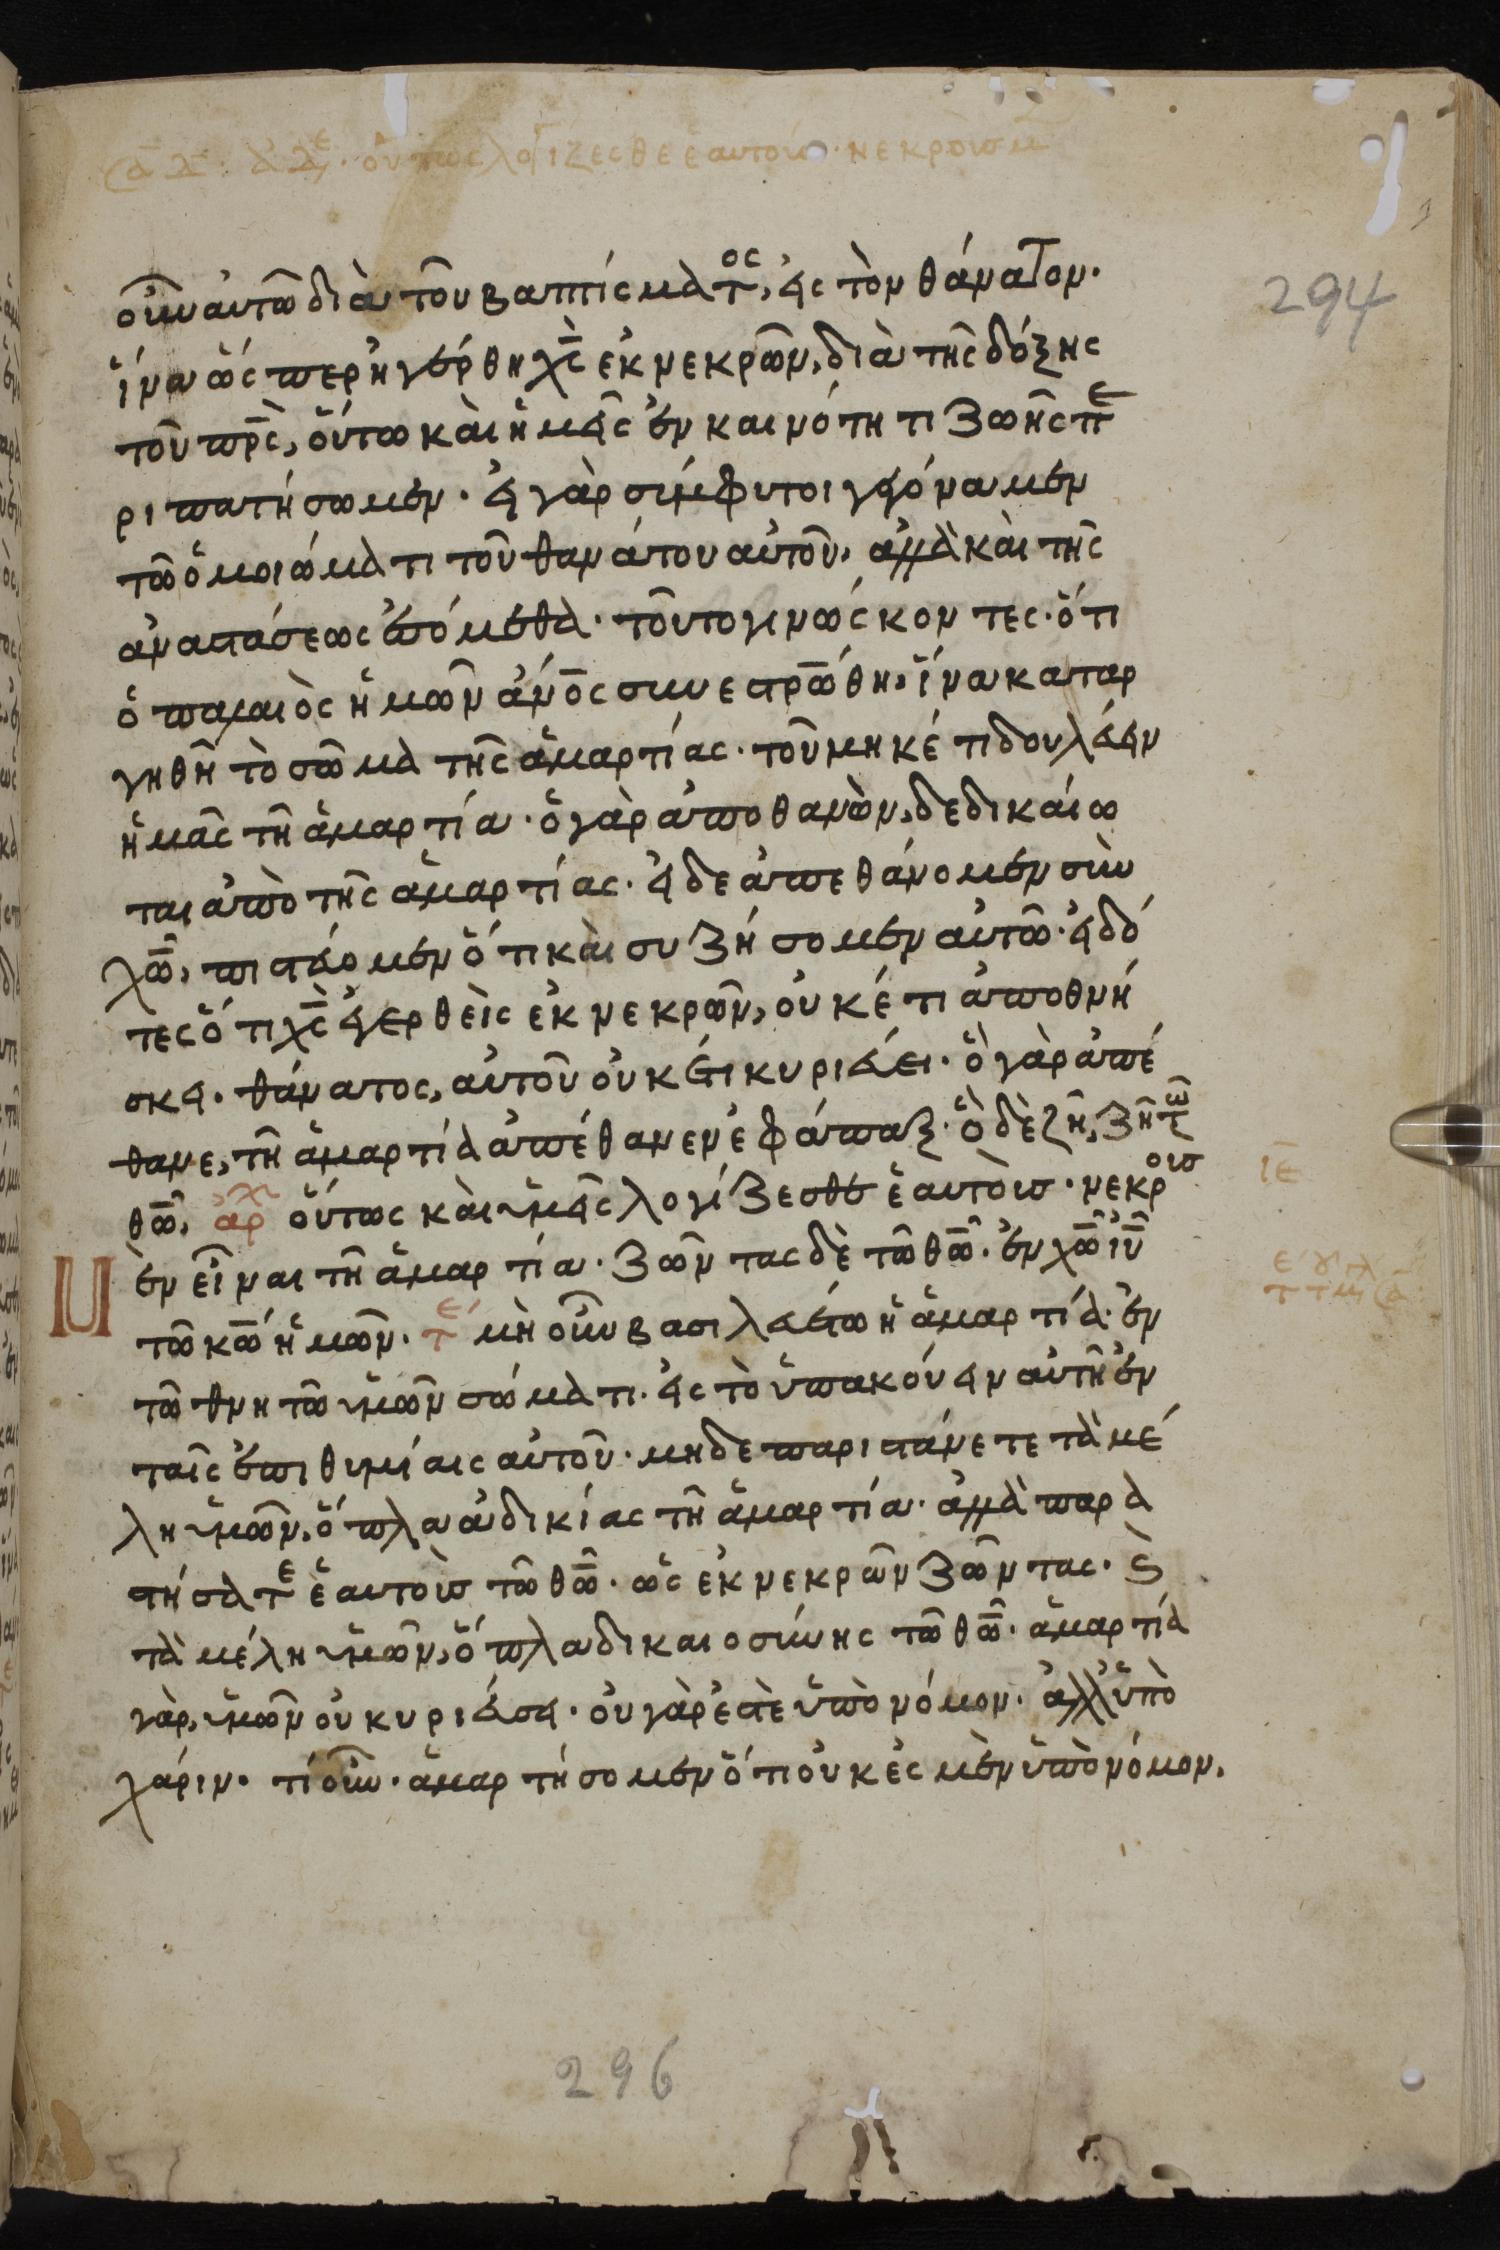 οὖν αὐτῶ διὰ τοῦ βαπτίσματος, εἰς τὸν θάνατον.
ἵνα ὥσπερ ἠγέρθη χ̅ς ἐκ νεκρῶν, διὰ τῆς δόξης
τοῦ π̅ρ̅ς, οὕτω καὶ ἡμεῖς ἐν καινότητι ζωῆς πε
ριπατήσωμεν. εἰ γὰρ σύμφυτοι γεγόναμεν
τῶ ὁμοιώματι τοῦ θανάτου αὐτοῦ, ἀλλὰ καὶ τῆς
ἀναστάσεως ἐσόμεθα. τοῦτο γινώσκοντες. ὅτι
ὁ παλαιὸς ἡμῶν ἄν̅ο̅ς συνεστρώθη, ἵνα καταρ
γηθῆ τὸ σῶμα τῆς ἁμαρτίας. τοῦ μηκέτι δουλεύειν
ἡμᾶς τῆ ἁμαρτία. ὁ γὰρ ἀποθανὼν, δεδικαίω
ται ἀπὸ τῆς ἁμαρτίας. εἰ δε ἀπεθάνομεν σὺν
χ̅ω, πιστεύομεν ὅτι καὶ συζήσομεν αὐτῶ. εἰδό
τες ὅτι χ̅ς ἐγερθεὶς ἐκ νεκρῶν, οὐκέτι ἀποθνή
σκει. θάνατος, αὐτοῦ οὐκέτι κυριεύει. ὃ γὰρ ἀπέ
θανε, τῆ ἁμαρτία ἀπέθανεν ἐφάπαξ. ὃ δὲ ζῆ, ζῆ τῶ
θ̅ω. ἀρχ οὕτως καὶ ὑμεῖς λογίζεσθε ἑαυτοὺς. νεκροὺς
ἐν εἶναι τῆ ἁμαρτία. ζῶντας δὲ τῶ θ̅ω. ἐν χ̅ω ἰ̅υ
τῶ κ̅ω ἡμῶν. τέ μὴ οὖν βασιλευέτω ἡ ἁμαρτία. ἐν
τῶ θνητῶ ὑμῶν σώματι. εἰς τὸ ὑπακούειν αὐτῆ ἐν
ταῖς ἐπιθυμίαις αὐτοῦ. μηδε παριστάνετε τὰ μέ
λη ὑμῶν, ὅπλα ἀδικίας τῆ ἁμαρτία. ἀλλὰ παρα
στήσατε ἑαυτοὺς τῶ θ̅ω. ὡς ἐκ νεκρῶν ζῶντας. ϗ
τὰ μέλη ὑμῶν, ὅπλα δικαιοσύνης τῶ θ̅ω. ἁμαρτία
γὰρ, ὑμῶν οὐ κυριεύσει. οὐ γὰρ ἐστὲ ὑπὸ νόμον. ἀλλ' ὑπὸ
χάριν. τί οὖν. ἁμαρτήσομεν ὅτι οὐκ ἐσμὲν ὑπὸ νόμον,
294
ιε
296